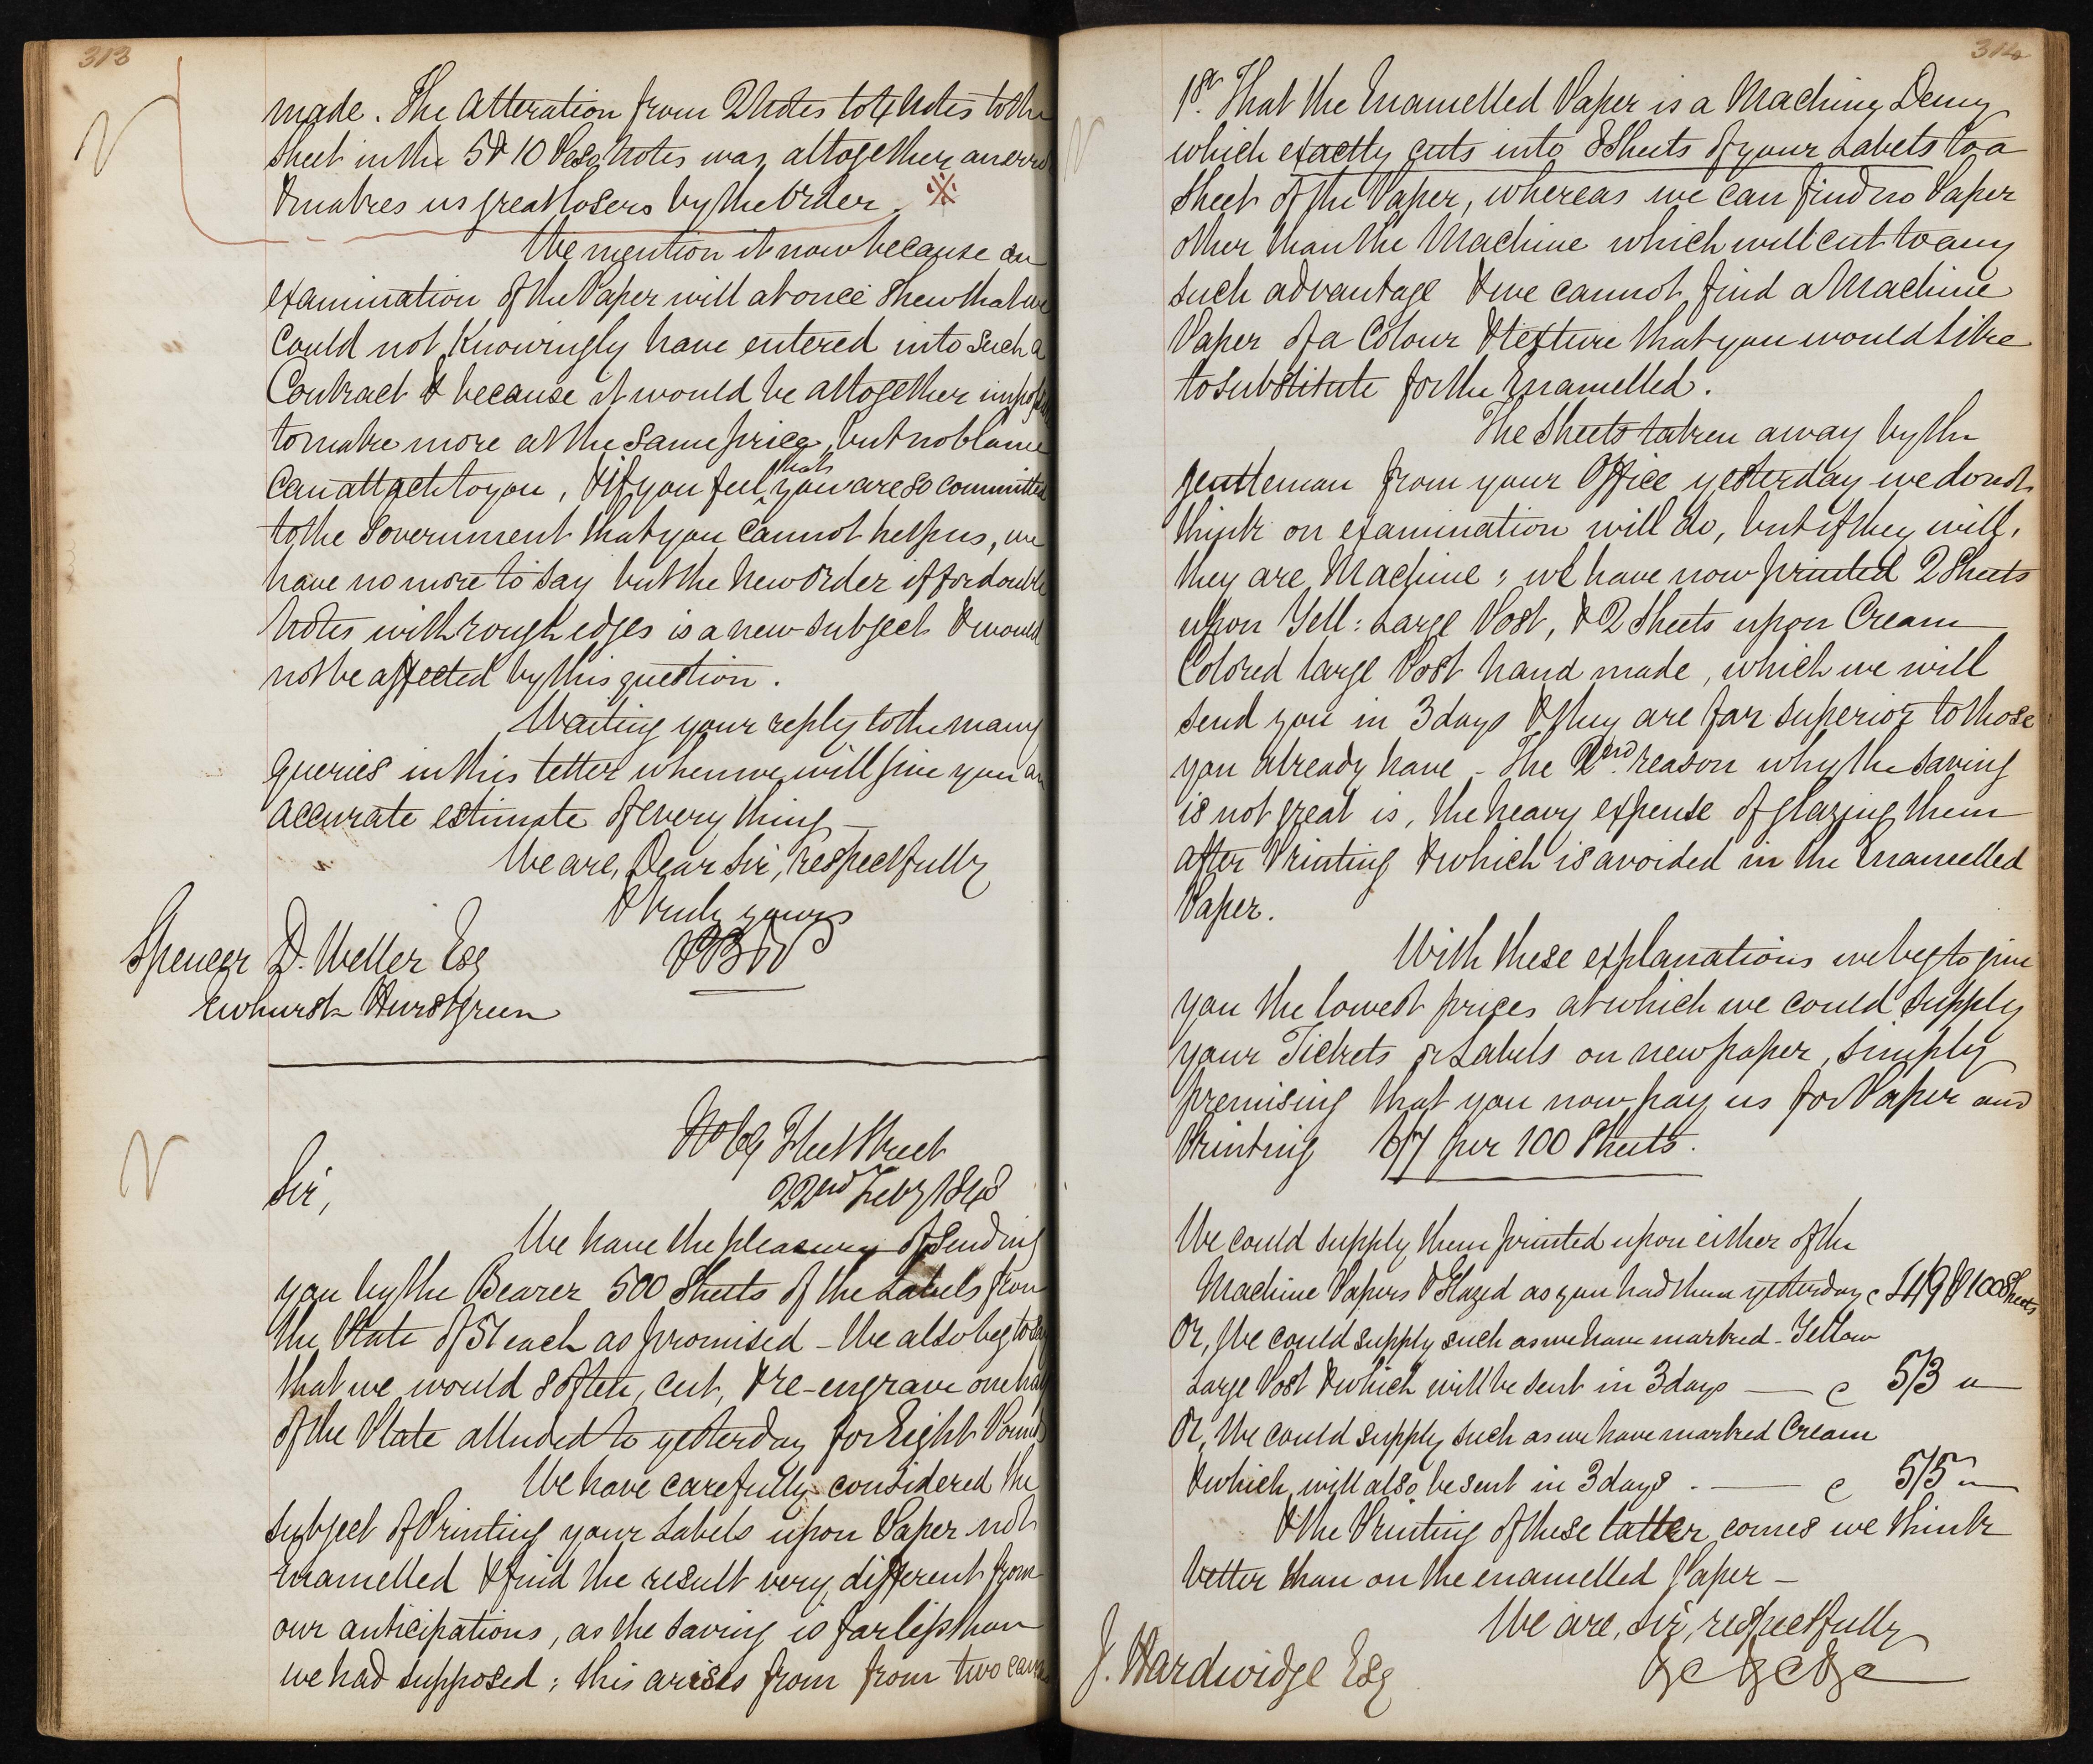 313
made. The Alteration from 2 Notes to 4 Notes to the
Sheet in the 5 & 10 Peso Notes was altogether an erro
& makes us great losers by the Order.
We mention it now because an
examination of the Paper will at once shew that we
could not Knowingly have entered into such a
Contract & because it would be altogether
to make more at the same price, but no blame
can attach to you, & if you feel that you are so committed
to the Government that you cannot help us, we
have no more to say but the New Order if for double
Notes with rough edges is a new subject & would
not be affected by this question.
Waiting your reply to the many
queries in this letter when we will give you an
accurate estimate of every thing —
We are, Dear Sir, respectfully
& truly yours
PB & Co
Spencer D. Weller Esq
Ewhurst Hurstgreen
No 69 Fleet Street
22nd Feby 1848
Sir,
We have the pleasure of sending
you by the Bearer 500 Sheets of the Labels from
the Plate of 51 each as promised — We also beg to say
that we would soften, cut, & re-engrave one half
of the Plate alluded to yesterday for Eight Pounds
We have carefully considered the
subject of Printing your Labels upon Paper not
Enamelled & find the result very different from
our anticipations, as the saving is far less than
we had supposed; this arises from from two causes
314
1st. That the Enamelled Paper is a Machine Demy
which exactly cuts into 8 Sheets of your Labels to a
Sheet of the Paper, whereas we can find no Paper
other than the Machine which will cut to any
such advantage & we cannot find a Machine
Paper of a Colour & texture that you would like
to substitute for the Enamelled.
The Sheets taken away by the
gentleman from your Office yesterday we do not
think on examination will do, but if they will,
they are Machine; we have now printed 2 Sheets
upon Yell: Large Post, & 2 Sheets upon Cream
Colored large Post hand made, which we will
send you in 3 days & they are far superior to those
you already have — The 2nd. reason why the saving
is not great is, the heavy expense of glazing them
after Printing & which is avoided in the Enamelled
Paper.
With these explanations we beg to give
you the lowest prices at which we could supply
your Tickets or Labels on new paper, simply
premising that you now pay us for Paper and
Printing 6/7 per 100 Sheets.
We could supply them printed upon either of the
Machine Papers & Glazed as you had them yesterday @ 4/9 P 100 Sheets
Or, We could supply such as we have marked - Yellow
Large Post & which will be sent in 3 days — @ 5/3 "
Or, We could supply such as we have marked Cream
& which will also be sent in 3 days. — @ 5/5 "
& the Printing of these latter comes we think
better than on the enamelled Paper —
We are, Sir, respectfully
J. Hardwidge Esq
&c &c &c